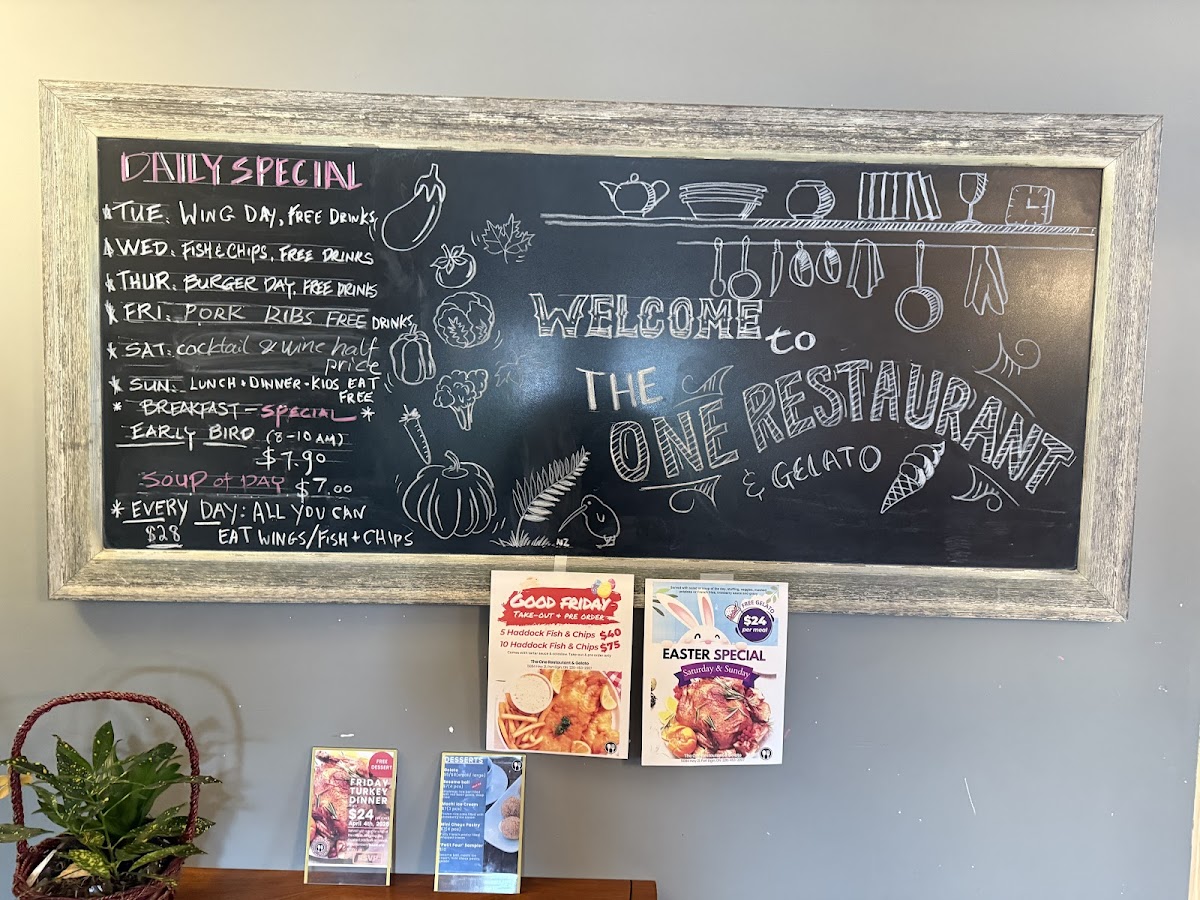 DAILY SPECIAL
* TUE. WING DAY, FREE DRINKS
* WED. FISH & CHIPS, FREE DRINKS
* THUR. BURGER DAY, FREE DRINKS
* FRI. PORK RIBS FREE DRINKS
* SAT. cocktail & wine half price
* SUN. LUNCH + DINNER - KIDS EAT FREE
* BREAKFAST - SPECIAL *
EARLY BIRD (8-10 AM)
$7.90
SOUP of DAY $7.00
* EVERY DAY: ALL YOU CAN
$28 EAT WINGS/FISH + CHIPS
NZ
WELCOME
to
THE
ONE RESTAURANT
& GELATO
GOOD FRIDAY
TAKE-OUT + PRE ORDER
5 Haddock Fish & Chips $40
10 Haddock Fish & Chips $75
The One Restaurant & Gelato
FREE GELATO
$24
per meal
EASTER SPECIAL
Saturday & Sunday
FREE
DESSERT
FRIDAY
TURKEY
DINNER
$24
April 4th,
RSVP
DESSERTS
Mochi Ice Cream
Mini Choux Pastry